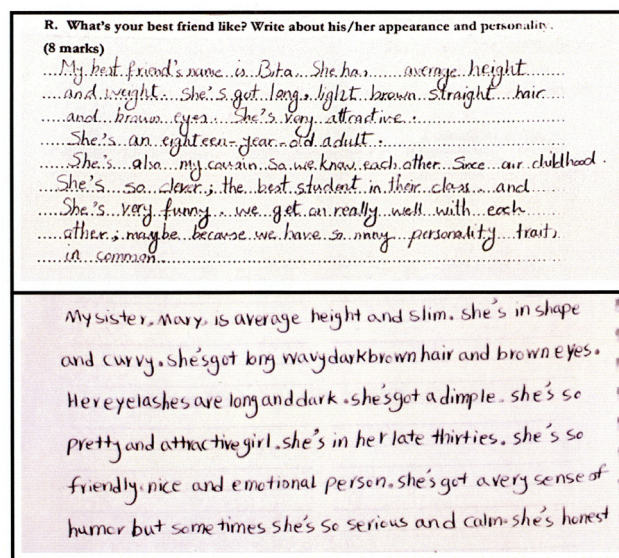 R. What's your best friend like? Write about his/her appearance and personality.
(8 marks)
My best friend's name is Bita. She has average height
and weight. She's got long, light brown straight hair
and brown eyes. She's very attractive.
She's an eighteen-year-old adult.
She's also my cousin so we know each other since our childhood.
She's so clever; the best student in their class. and
She's very funny. we get on really well with each
other; maybe because we have so many personality traits
in common.
My sister, Mary, is average height and slim. she's in shape
and curvy. she's got long wavy dark brown hair and brown eyes.
Her eyelashes are long and dark. she's got a dimple. she's so
pretty and attractive girl. she's in her late thirties. she's so
friendly. nice and emotional person. she's got a very sense of
humor but some times she's so serious and calm. she's honest